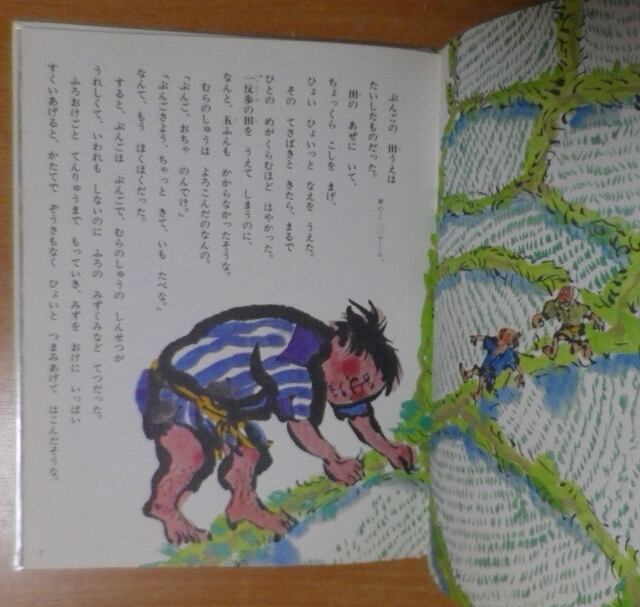 ぶんごの　田うえは
たいしたものだった。
田の　あぜに　いて、
ちょっくら　こしを　まげ、
ひょい　ひょいっと　なえを　うえた。
その　てさばきと　きたら、まるで
ひとの　めがくらむほど　はやかった。
一反歩の田を　うえて　しまうのに、
なんと、五ふんも　かからなかったそうな。
むらのしゅうは　よろこんだのなんの。
「ぶんご、おちゃ　のんでけ。」
「ぶんごさよう、ちゃっと　きて、いも　たべな。」
なんて、もう　ほくほくだった。
すると、ぶんごは　ぶんごで、むらのしゅうの　しんせつが
うれしくて、いわれも　しないのに　ふろの　みずくみなど　てつだった。
ふろおけごと　てんりゅうまで　もっていき、みずを　おけに　いっぱい
すくいあげると、かたてで　ぞうさもなく　ひょいと　つまみあげて　はこんだそうな。